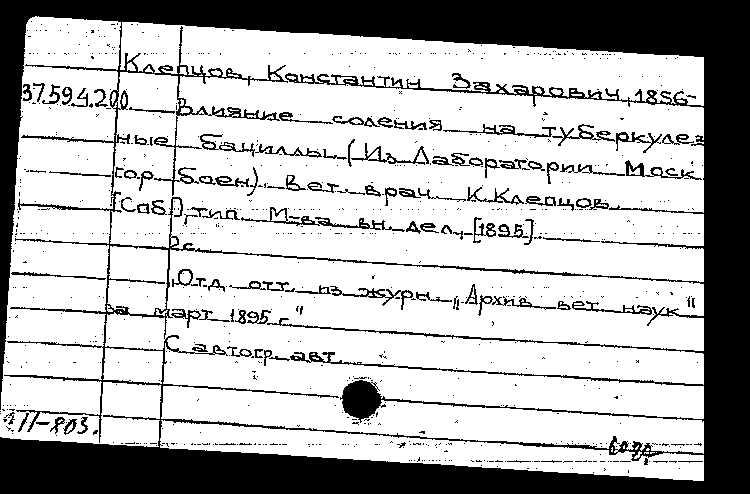 Клепцов, Константин Захарович, 1856-
37.59.4.200 Влияние соления на туберкулез
ные бациллы. (Из Лаборатории Моск.
гор. боен). Вет. врач К. Клепцов.
[Спб.], тип. М-ва вн. дел, [1895].
2 с.
„Отд. отт. из журн. „Архив вет. наук"
за март 1895 г."
С автогр. авт.